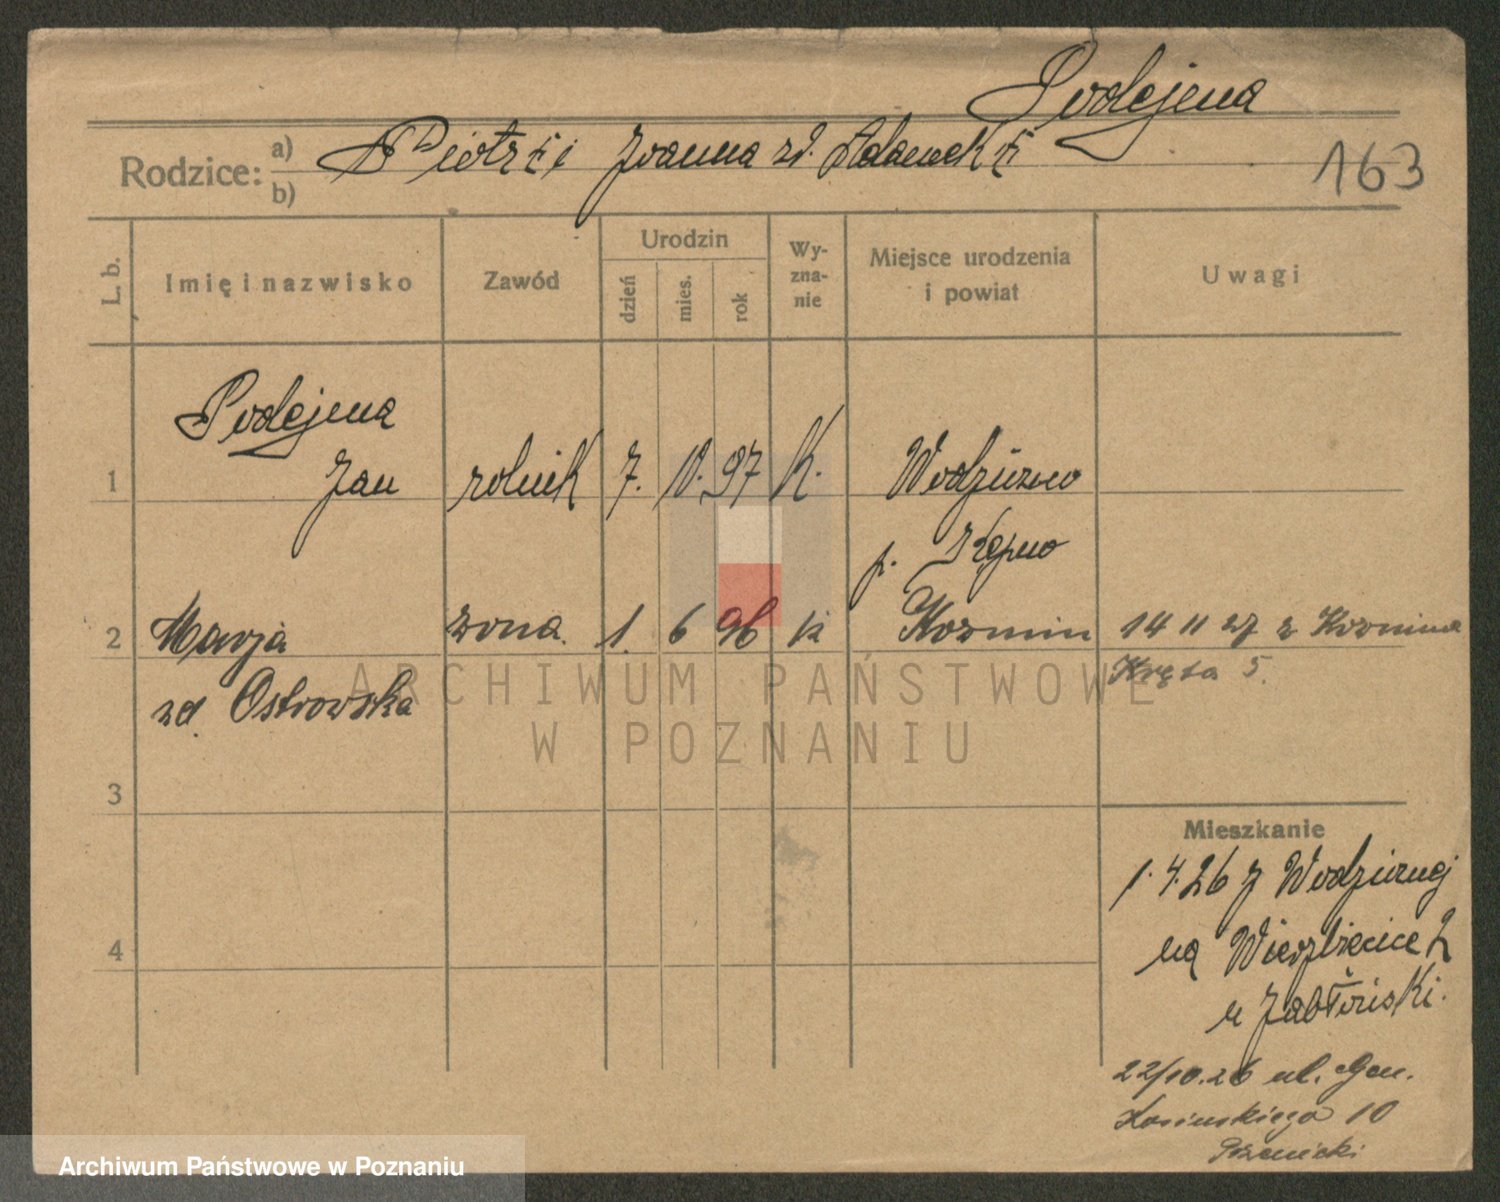 Podejma
Rodzice: a) Piotr i Joanna zd.
b)
163
L. b.
Imię i nazwisko
Zawód
Urodzin
dzień
mies.
rok
Wy-
zna-
nie
Miejsce urodzenia
i powiat
Uwagi
Podejma
1 Jan rolnik 7. 97 K.
p. Kępno
2 Marja żona. 1. 6 96 k Kozmin 14 11 27 z Kozmina
zd. Ostrowska Kręta 5.
ARCHIWUM PAŃSTWOWE
W POZNANIU
3
Mieszkanie
1.4.26 z
na Wierzbięcice 2
4
u Jabłoński.
22/10.26 ul. Gen.
Kosińskiego 10
Archiwum Państwowe w Poznaniu